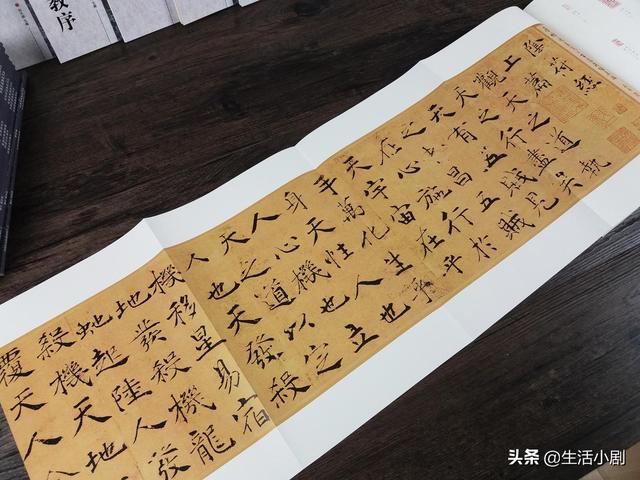 教序
陰符經
上篇
觀天之道執
天之行盡矣
天有五賊見
之者昌五賊
在心施行於
天宇宙在乎
手萬化生乎
身天性人也
人心機也立
天之道以定
人也天發殺
機移星易宿
地發殺機龍
虵起陸人發
殺機天地
覆天人
头条 @生活小剧